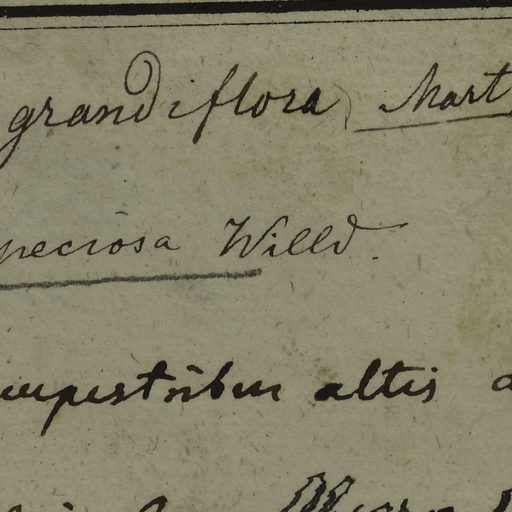 grandiflora Mart
peciosa Willd.
campestribus altis